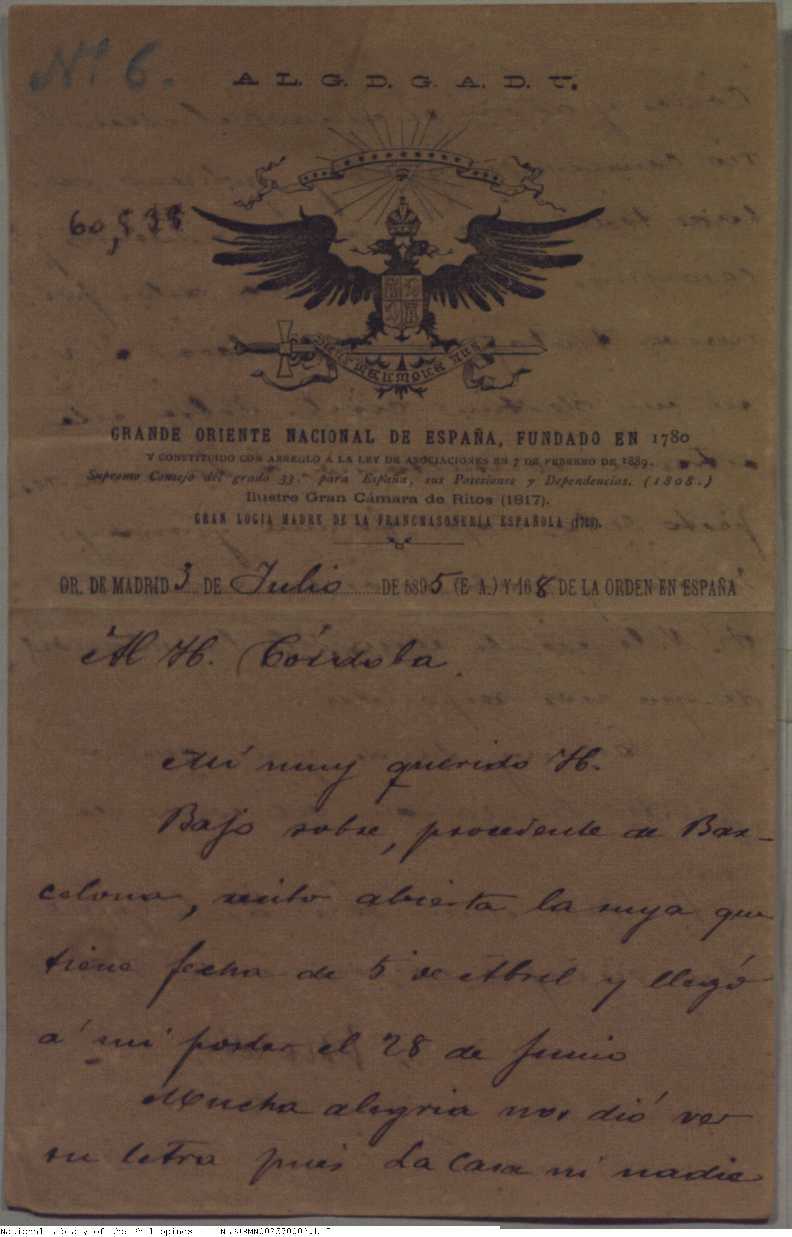 Nº 6.
A L. G. D. G. A. D. U.
60,535
DEUS MEUMQUE JUS
GRANDE ORIENTE NACIONAL DE ESPAÑA, FUNDADO EN 1780
Y CONSTITUIDO CON ARREGLO Á LA LEY DE ASOCIACIONES EN 7 DE FEBRERO DE 1889.
Supremo Consejo del grado 33.º para España, sus Posesiones y Dependencias. (1808.)
Ilustre Gran Cámara de Ritos (1817).
GRAN LOGIA MADRE DE LA FRANCMASONERIA ESPAÑOLA
OR. DE MADRID 3 DE Julio DE 1895 (E. A.) Y 168 DE LA ORDEN EN ESPAÑA
Al H. Córdoba
Mi muy querido H.
Bajo sobre, procedente de Bar-
celona, recibo abierta la suya que
tiene fecha de 5 de Abril y llegó
á mi poder el 28 de Junio
Mucha alegria nos dió ver
su letra pues La Casa ni nadie
National Library of the Philippines